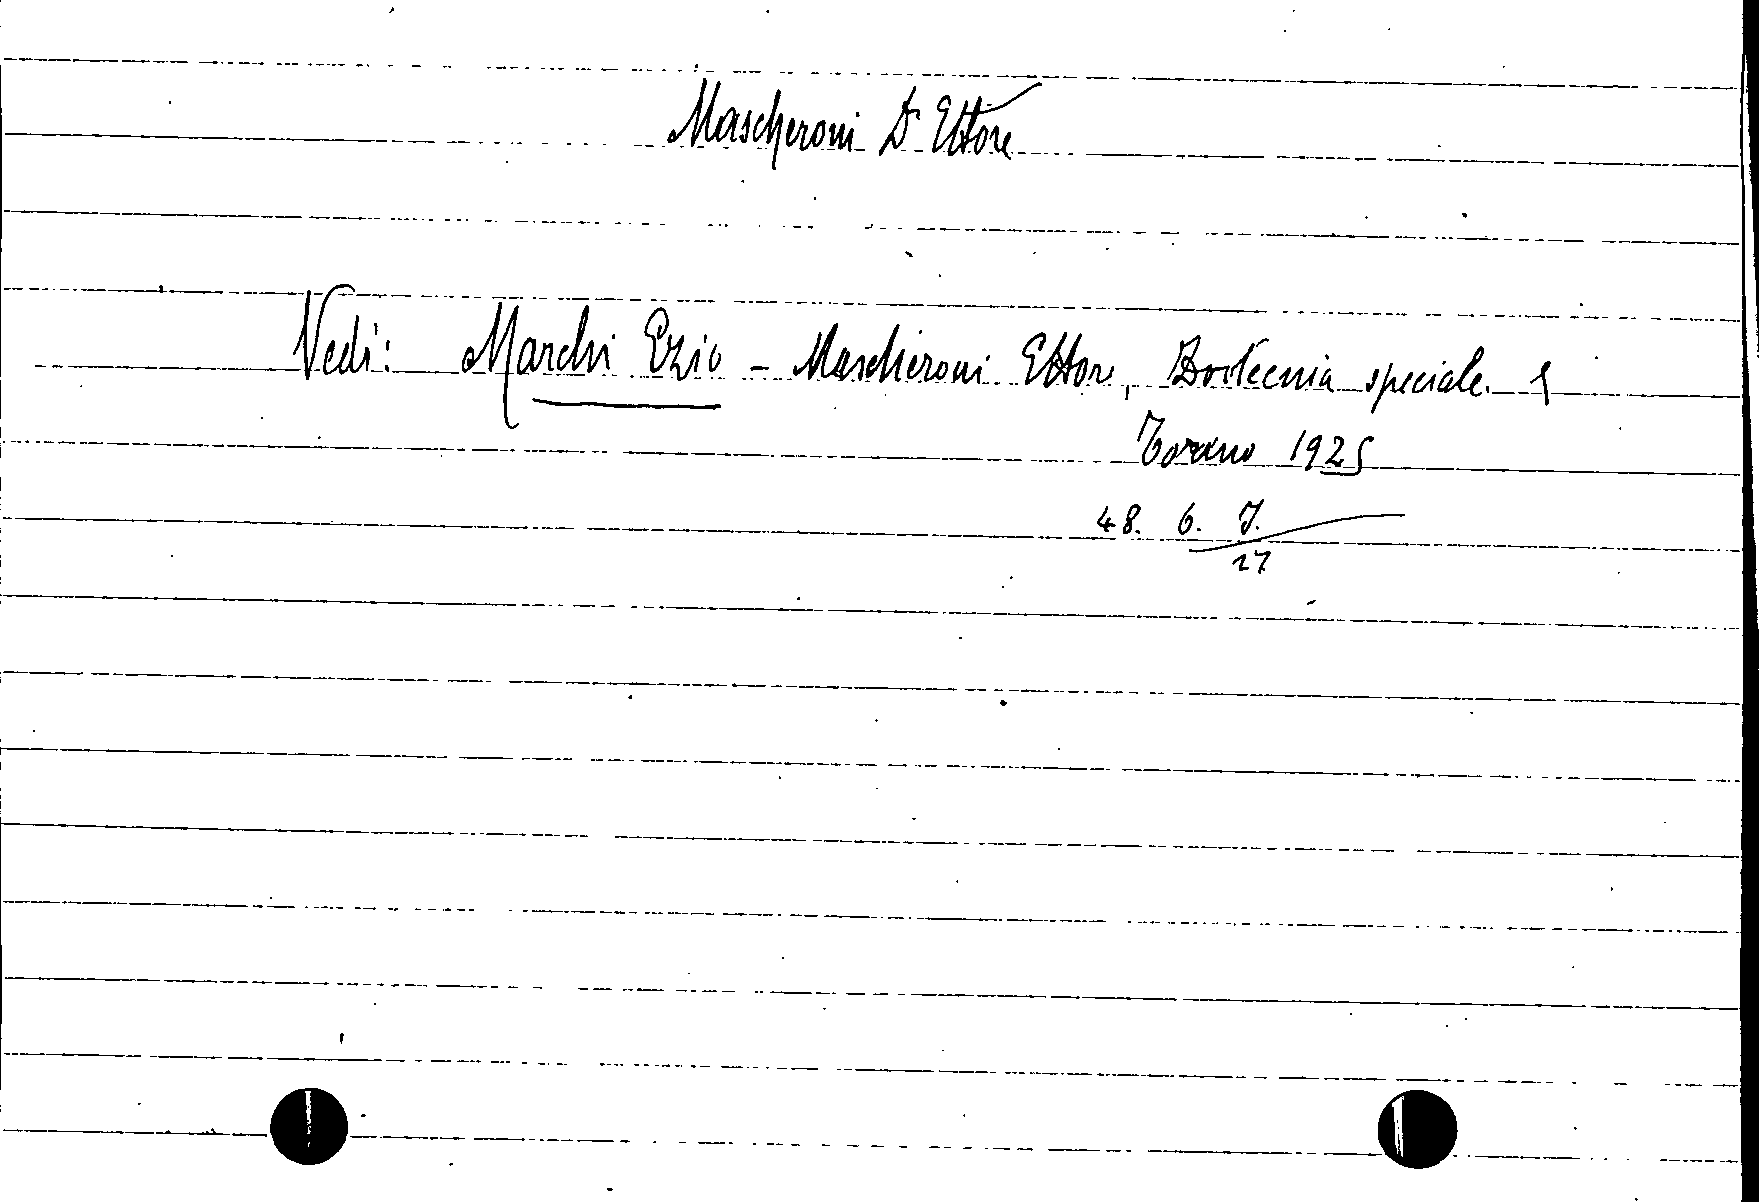 Mascheroni Dr Ettore
Vedi: Marchi Ezio - Mascheroni Ettore, Zootecnia speciale. I
Torino 1925
48. 6. J.
27